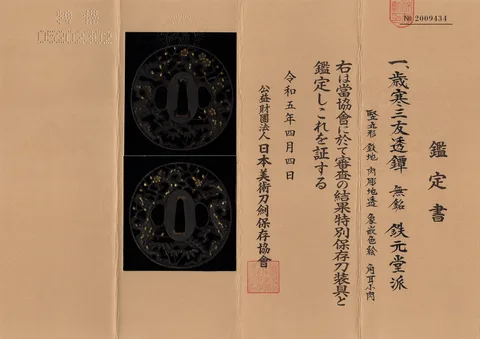 № 2009434
鑑定書
一、歳寒三友透鐔 無銘 鉄元堂派
竪丸形 鉄地 肉彫地透 象嵌色絵 角耳小肉
右は當協會に於て審査の結果特別保存刀装具と
鑑定しこれを証する
令和五年四月四日
公益財團法人 日本美術刀劍保存協會